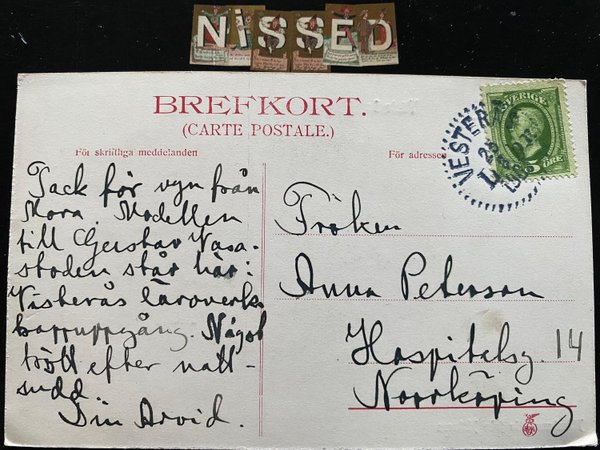 NiSSED
BREFKORT.
(CARTE POSTALE.)
För skriftliga meddelanden
För adressen
SVERIGE
ÖRE
VESTERÅS
Tack för vyn från
Mora. Modellen
till Gustav Vasa-
stoden står här i
Västerås läroverks
trappuppgång. Något
trött efter natt-
sudd.
Din Arvid.
Fröken
Anna Peterson
Hospitalsg. 14
Norrköping